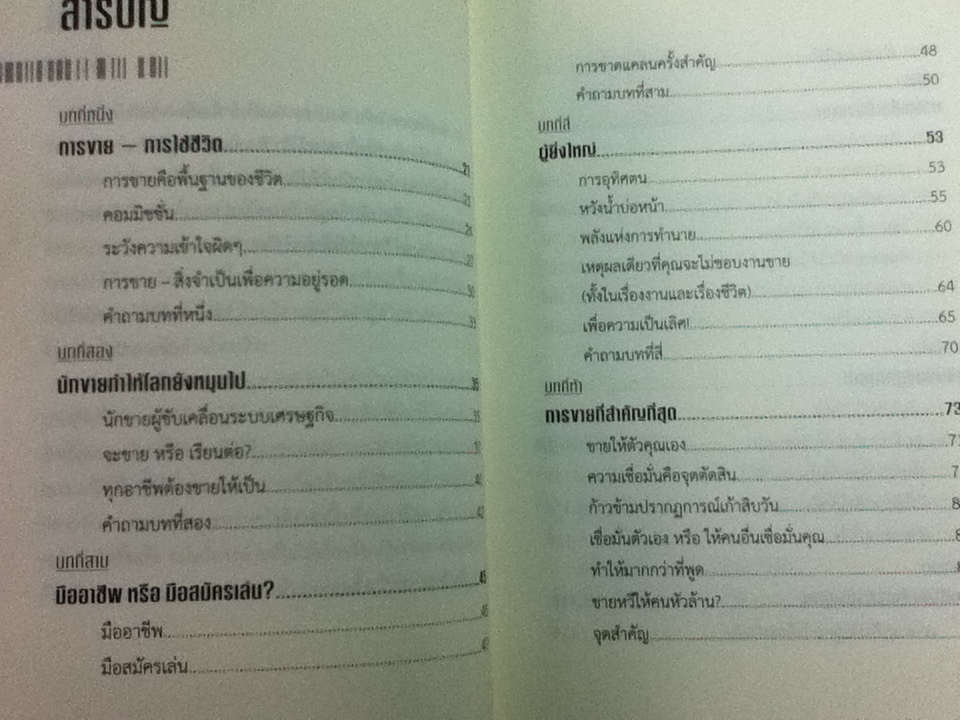 สารบัญ
บทที่หนึ่ง
การขาย – การใช้ชีวิต........21
การขายคือพื้นฐานของชีวิต........21
คอมมิชชั่น........
ระวังความเข้าใจผิดๆ........
การขาย – สิ่งจำเป็นเพื่อความอยู่รอด........
คำถามบทที่หนึ่ง........
บทที่สอง
นักขายทำให้โลกยังหมุนไป........
นักขายผู้ขับเคลื่อนระบบเศรษฐกิจ........
จะขาย หรือ เรียนต่อ?........
ทุกอาชีพต้องขายให้เป็น........
คำถามบทที่สอง........
บทที่สาม
มืออาชีพ หรือ มือสมัครเล่น?........
มืออาชีพ........
มือสมัครเล่น........
การขาดแคลนครั้งสำคัญ........48
คำถามบทที่สาม........50
บทที่สี่
ผู้ยิ่งใหญ่........53
การอุทิศตน........53
หวังน้ำบ่อหน้า........55
พลังแห่งการทำนาย........60
เหตุผลเดียวที่คุณจะไม่ชอบงานขาย
(ทั้งในเรื่องงานและเรื่องชีวิต)........64
เพื่อความเป็นเลิศ!........65
คำถามบทที่สี่........70
บทที่ห้า
การขายที่สำคัญที่สุด........73
ขายให้ตัวคุณเอง........
ความเชื่อมั่นคือจุดตัดสิน........
ก้าวข้ามปรากฏการณ์เก้าสิบวัน........
เชื่อมั่นตัวเอง หรือ ให้คนอื่นเชื่อมั่นคุณ........
ทำให้มากกว่าที่พูด........
ขายหวีให้คนหัวล้าน?........
จุดสำคัญ........